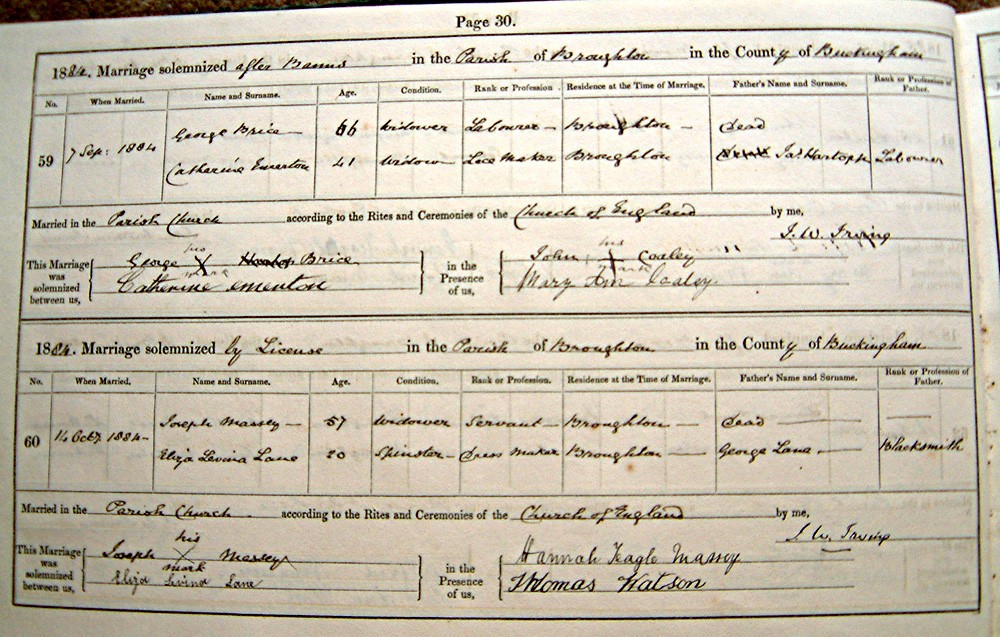 Page 30.
1884. Marriage solemnized after Banns in the Parish of Broughton in the County of Buckingham
No. When Married. Name and Surname. Age. Condition. Rank or Profession Residence at the Time of Marriage. Father's Name and Surname. Rank or Profession of Father.
George Brice 66 Widower Labourer Broughton dead
59 7 Sep: 1884
Catharine Emerton 41 Widow Lace Maker Broughton Jas Hartoph Labourer
Married in the Parish Church according to the Rites and Ceremonies of the Church of England by me,
J. W. Irving
This Marriage was solemnized between us,
his
George X Brice
mark
Catherine emerton
in the Presence of us,
his
John X Coaley
mark
Mary Ann Coaley
1884. Marriage solemnized by License in the Parish of Broughton in the County of Buckingham
No. When Married. Name and Surname. Age. Condition. Rank or Profession. Residence at the Time of Marriage. Father's Name and Surname. Rank or Profession of Father.
Joseph Massey 57 Widower Servant Broughton dead
60 Octr 1884
Eliza Levina Lane 20 Spinster Dress Maker Broughton George Lane Blacksmith
Married in the Parish Church according to the Rites and Ceremonies of the Church of England by me,
J. W. Irving
This Marriage was solemnized between us,
his
Joseph X Massey
mark
Eliza Levina Lane
in the Presence of us,
Hannah Teagle Massey
Thomas Watson